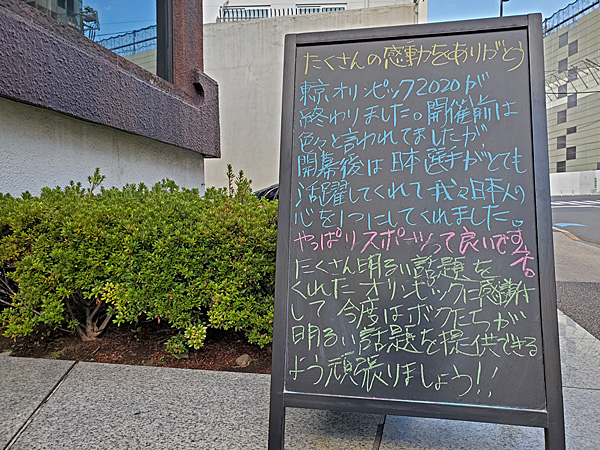 たくさんの感動をありがとう
東京オリンピック2020が
終わりました。開催前は
色々と言われてましたが、
開幕後は日本選手がとても
活躍してくれて我々日本人の
心を1つにしてくれました。
やっぱりスポーツって良いですネ。
たくさん明るい話題を
くれたオリンピックに感謝
して今度はボクたちが
明るい話題を提供できる
よう頑張りましょう!!